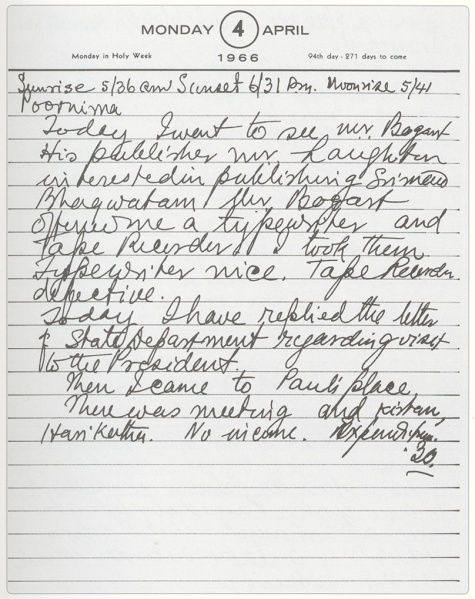 MONDAY 4 APRIL
Monday in Holy Week 1966 94th day - 271 days to come
Sunrise 5/36 am Sunset 6/31 P.m. Moonrise 5/41
Poornima
Today I went to see mr. Bogart
His publisher mr. Laughton
interested in publishing Srimad
Bhagwatam Mr. Bogart
offered me a typewriter and
Tape Recorder. I took them
Typewriter nice. Tape Recorder
defective.
Today I have replied the letter
of State Department regarding visit
to the President.
Then I came to Paul's place
There was meeting and kirtan,
Hari Kertan. No income. Expenditure.
.20